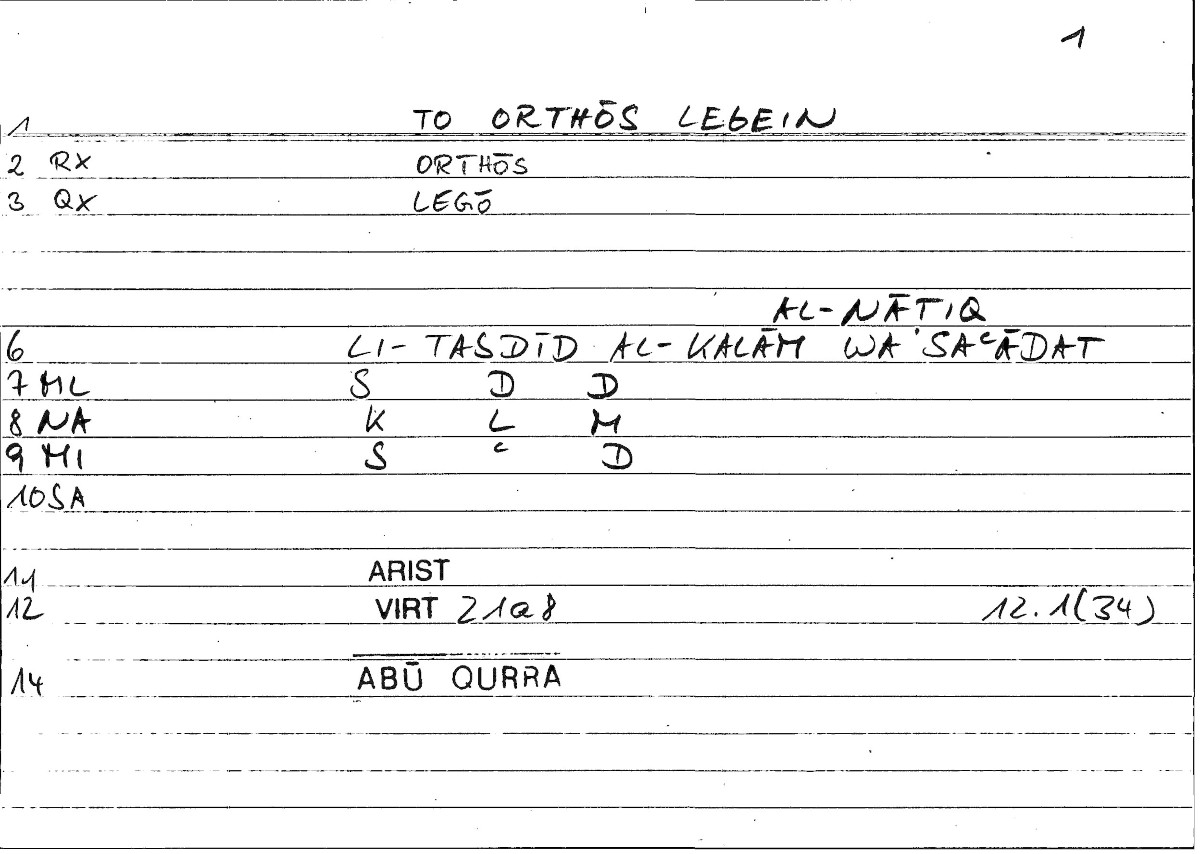 1
1 TO ORTHŌS LEGEIN
2 RX ORTHŌS
3 QX LEGŌ
AL-NĀTIQ
6 LI-TASDĪD AL-KALĀM WA'SAᶜĀDAT
7 ML S D D
8 NA K L M
9 MI S ᶜ D
10 SA
11 ARIST
12 VIRT 21a8 12.1(34)
14 ABŪ QURRA